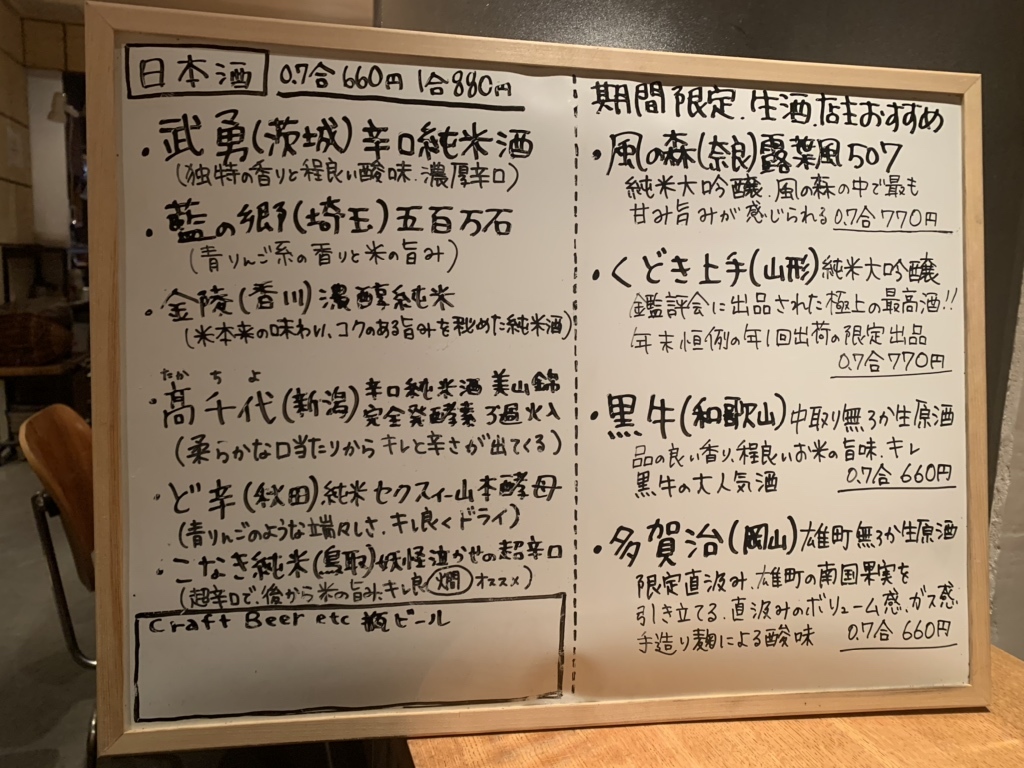 日本酒 0.7合 660円 1合 880円
・武勇(茨城)辛口純米酒
(独特の香りと程良い酸味.濃厚辛口)
・藍の郷(埼玉)五百万石
(青りんご系の香りと米の旨み)
・金陵(香川)濃醇純米
(米本来の味わい、コクのある旨みを秘めた純米酒)
たかちよ
・髙千代(新潟)辛口純米酒 美山錦
完全発酵素ろ過火入
(柔らかな口当たりからキレと辛さが出てくる)
・ど辛(秋田)純米セクスィー山本酵母
(青りんごのような瑞々しさ、キレ良くドライ)
・こなき純米(鳥取)妖怪泣かせの超辛口
(超辛口で、後から米の旨み、キレ良 燗 オススメ)
Craft Beer etc 瓶ビール
期間限定.生酒.店主おすすめ
・風の森(奈良)露葉風507
純米大吟醸、風の森の中で最も
甘み旨みが感じられる 0.7合 770円
・くどき上手(山形)純米大吟醸
鑑評会に出品された極上の最高酒!!
年末恒例の年1回出荷の限定出品
0.7合 770円
・黒牛(和歌山)中取り無ろか生原酒
品の良い香り、程良いお米の旨味、キレ
黒牛の大人気酒 0.7合 660円
・多賀治(岡山)雄町無ろか生原酒
限定直汲み、雄町の南国果実を
引き立てる、直汲みのボリューム感、ガス感
手造り麹による酸味 0.7合 660円